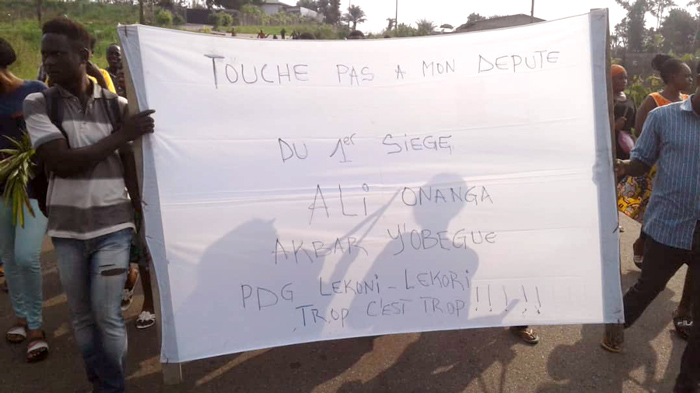 TOUCHE PAS A MON DEPUTE
DU 1er SIEGE
ALi ONANGA
AKBAR Y'OBEGUE
PDG LEKONI - LEKORI
TROP C'EST TROP !!!!!